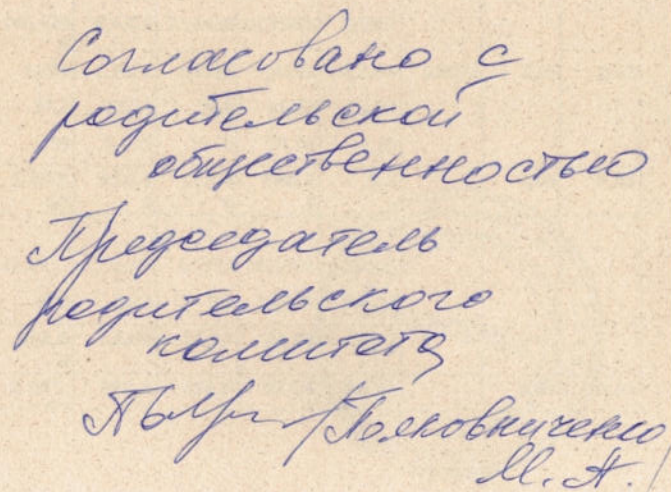 Согласовано с
родительской
общественностью
Председатель
родительского
комитета
/Полковниченко
М. А./